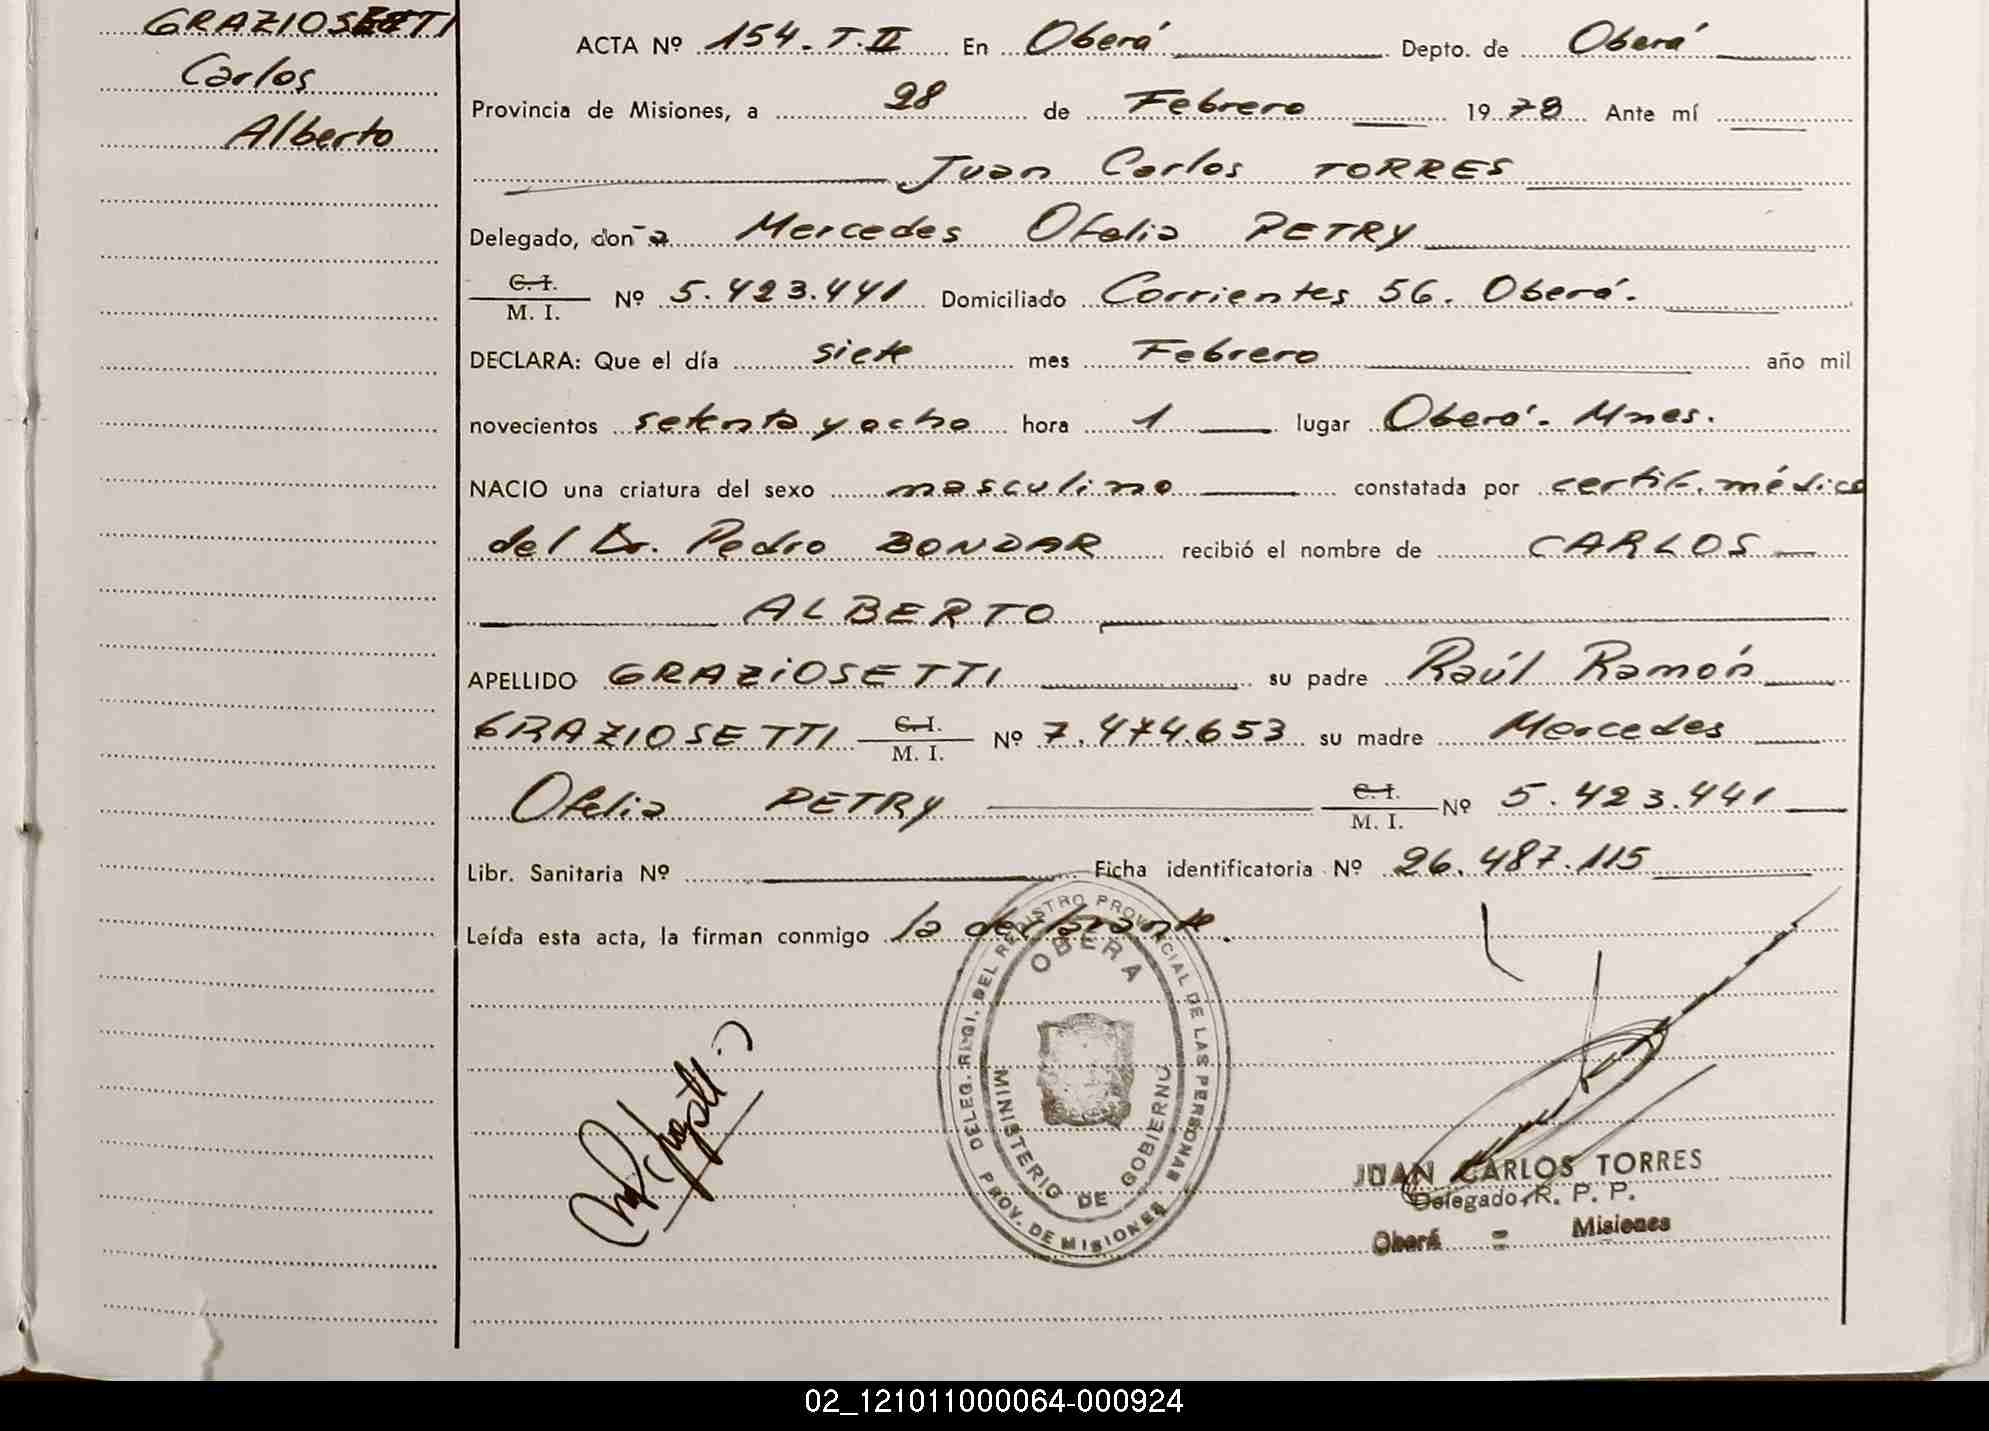 GRAZIOSETTI
Carlos
Alberto
ACTA Nº 154. T. II En Oberá Depto. de Oberá
Provincia de Misiones, a 28 de Febrero 1978 Ante mí
Juan Carlos TORRES
Delegado, don-a Mercedes Ofelia PETRY
C. I.
M. I. Nº 5.423.441 Domiciliado Corrientes 56. Oberá.
DECLARA: Que el día siete mes Febrero año mil
novecientos setenta y ocho hora 1 lugar Oberá. Mnes.
NACIO una criatura del sexo masculino constatada por certif. médico
del Dr. Pedro BONDAR recibió el nombre de CARLOS
ALBERTO
APELLIDO GRAZIOSETTI su padre Raúl Ramón
GRAZIOSETTI C. I. M. I. Nº 7.474.653 su madre Mercedes
Ofelia PETRY C. I. M. I. Nº 5.423.441
Libr. Sanitaria Nº Ficha identificatoria Nº 26.487.115
Leída esta acta, la firman conmigo la declarante.
DELEG. REGI. DEL REGISTRO PROVINCIAL DE LAS PERSONAS
OBERA
MINISTERIO DE GOBIERNO
PROV. DE MISIONES
JUAN CARLOS TORRES
Delegado R. P. P.
Oberá - Misiones
02_121011000064-000924